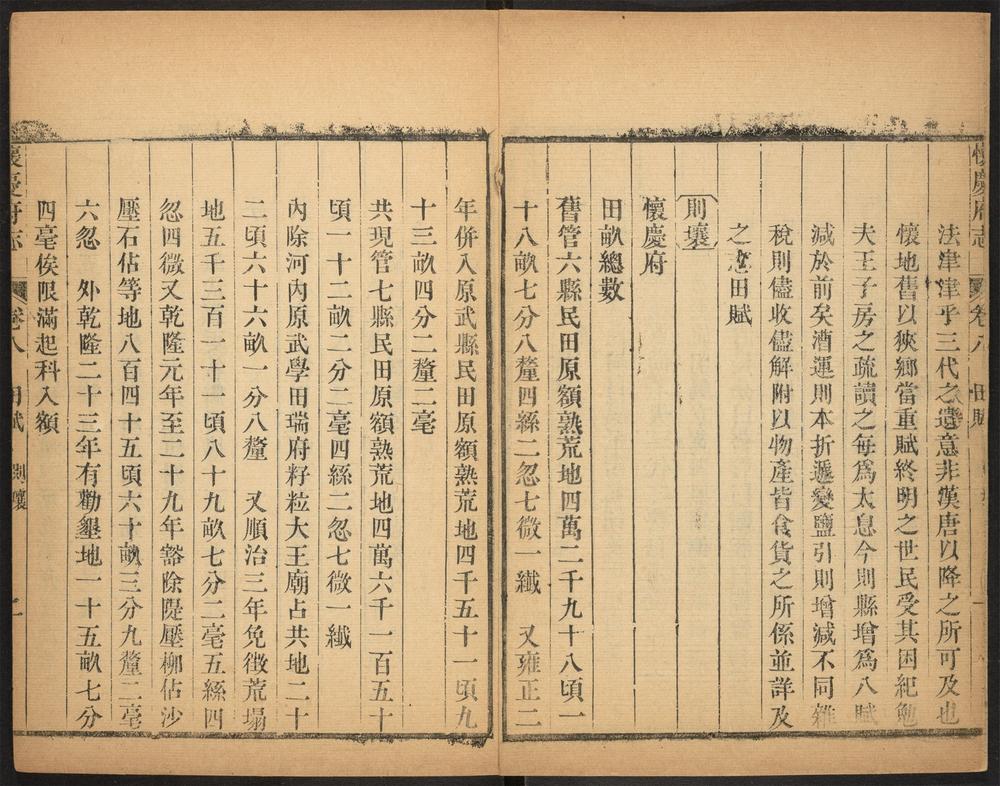 懷慶府志 卷八 田賦 一
法津津乎三代之遺意非漢唐以降之所可及也
懷地舊以狹鄉當重賦終明之世民受其困紀勉
夫王子房之疏讀之每爲太息今則縣增爲八賦
減於前矣漕運則本折遞變鹽引則增減不同雜
稅則儘收儘解附以物產皆食貨之所係並詳及
之志田賦
則壤
懷慶府
田畝總數
舊管六縣民田原額熟荒地四萬二千九十八頃一
十八畝七分八釐四絲二忽七微一纖 又雍正二
年併入原武縣民田原額熟荒地四千五十一頃九
十三畝四分二釐二毫
共現管七縣民田原額熟荒地四萬六千一百五十
頃一十二畝二分二毫四絲二忽七微一纖
內除河內原武學田瑞府籽粒大王廟占共地二十
二頃六十六畝一分八釐 又順治三年免徵荒塌
地五千三百一十一頃八十九畝七分二毫五絲四
忽四微又乾隆元年至二十九年豁除隄壓柳佔沙
壓石佔等地八百四十五頃六十畝三分九釐二毫
六忽 外乾隆二十三年有勸墾地一十五畝七分
四毫俟限滿起科入額
懷慶府志 卷八 田賦 則壤 二